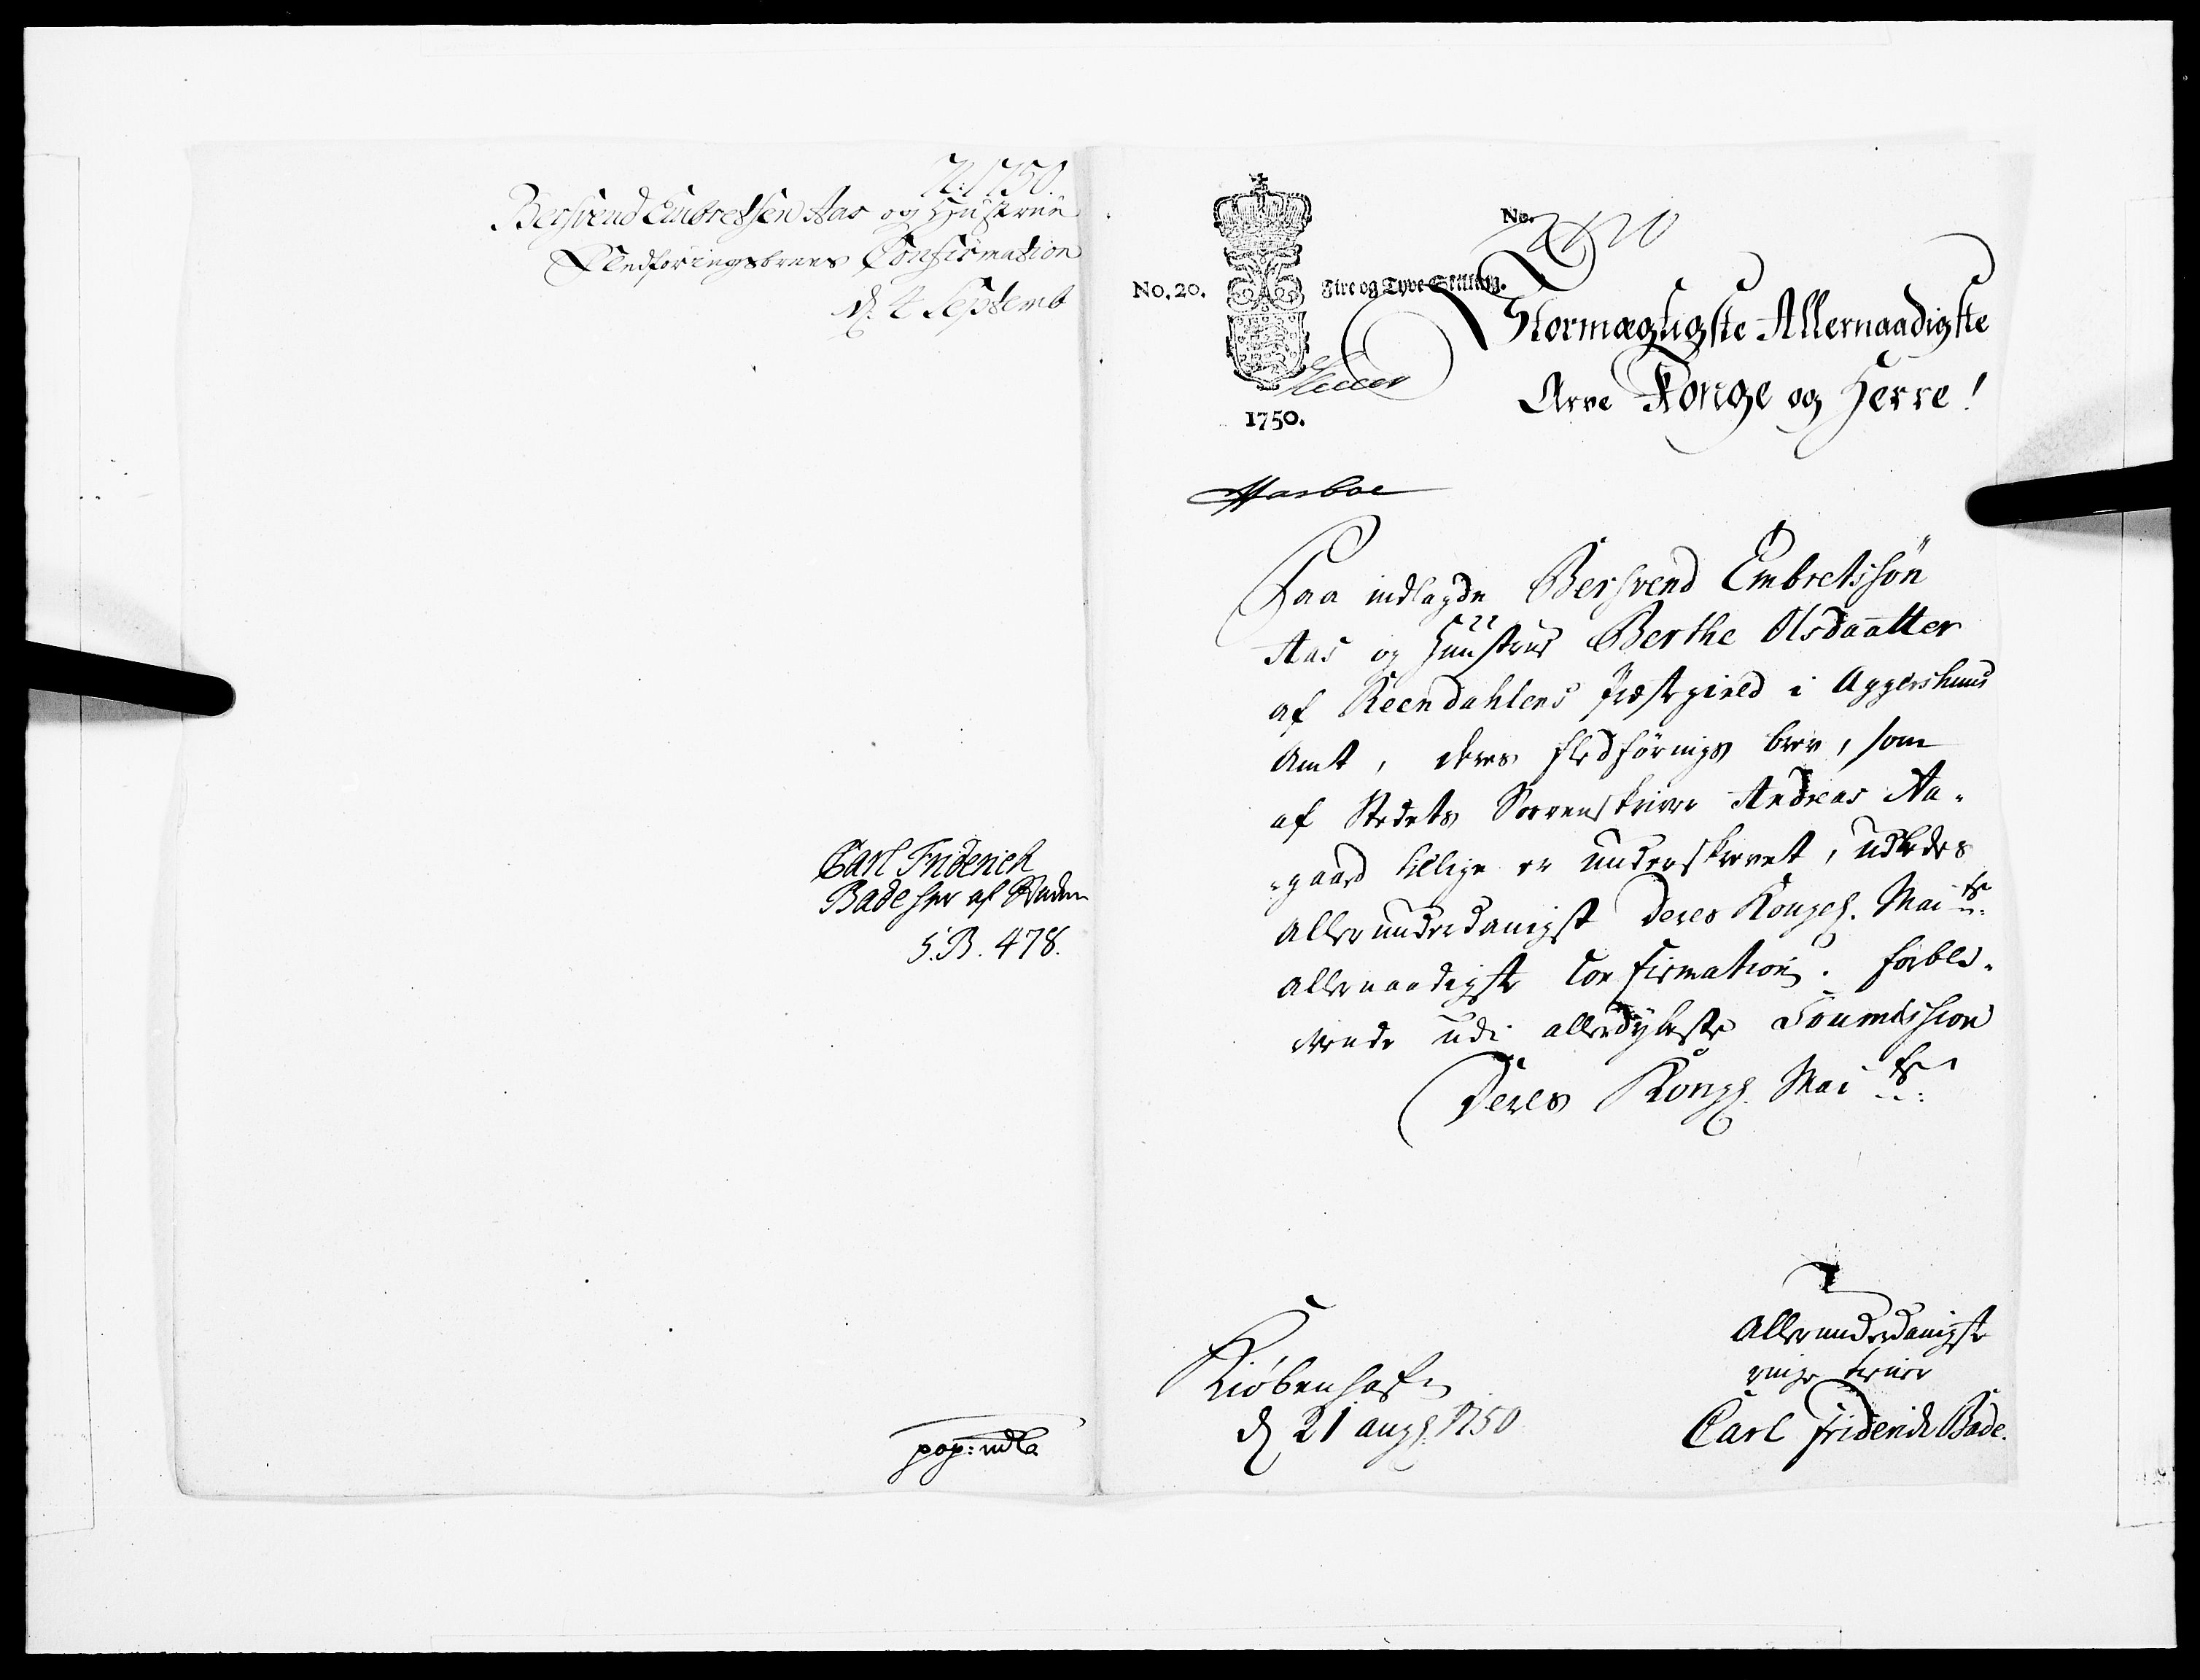 N. 1750.
Bersvend Embretssen Aas og Hustrue
Fledføringsbrevs Confirmation
d. 4 Septemb
Carl Friderich
Bade her af Staden
5.B. 478.
pop: indl.
No.
No. 20. Fire og Tyve Skilling.
1750.
Stormægtigste Allernaadigste
Arve Konge og Herre!
Paa indlagde Bersvend Embretssøn
Aas og Huustrues Berthe Olsdaatter
af Reendahlens Præstegield i Aggershuus
Amt, deres fledførings brev, som
af Stedets Sorenskriver Andreas Aa-
-gaard tillige er underskrevet, udbedes
allerunderdanigst Deres Kongel. Maits.
allernaadigste Confirmation. forble-
vende udi allerdybeste Soumission
Deres Kongl. Maits:
Kiøbenhafn
d 21 aug: 1750
Allerunderdanigste
ringe tiener
Carl Friderich Bade.